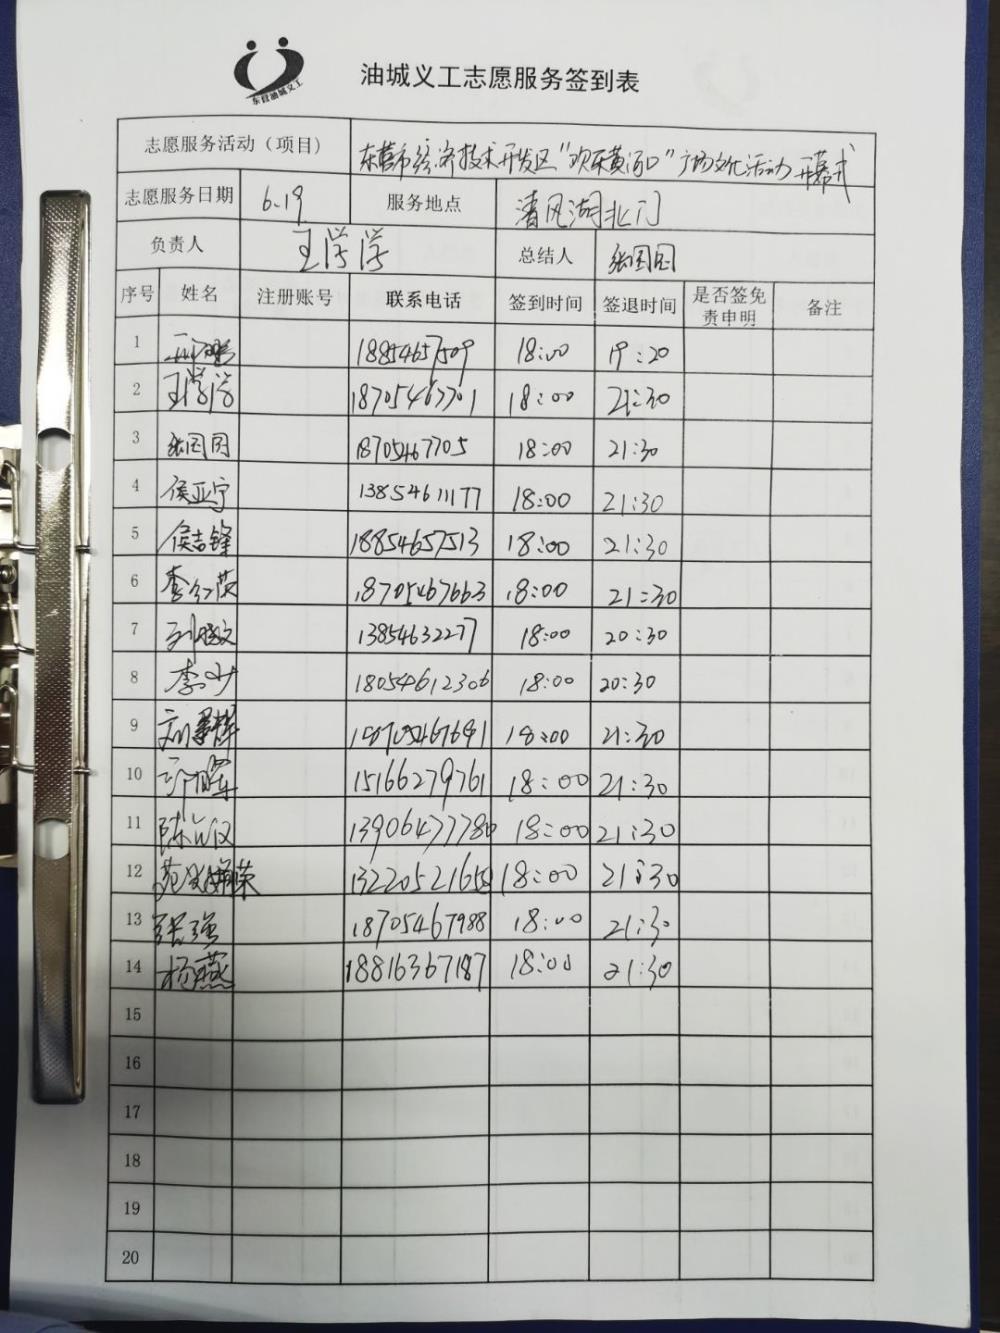 东营油城义工
油城义工志愿服务签到表
志愿服务活动（项目） 东营市经济技术开发区“欢乐黄河口”广场文化活动开幕式
志愿服务日期 6.19 服务地点 清风湖北门
负责人 王学学 总结人 张园园
序号 姓名 注册账号 联系电话 签到时间 签退时间 是否签免责申明 备注
1 18854657509 18:00 19:20
2 王学学 18705467701 18:00 21:30
3 张园园 18705467705 18:00 21:30
4 侯亚宁 13854611177 18:00 21:30
5 侯志锋 18854657513 18:00 21:30
6 李红英 18705467663 18:00 21:30
7 13854632277 18:00 20:30
8 18054612306 18:00 20:30
9 18:00 21:30
10 15166279761 18:00 21:30
11 13906477780 18:00 21:30
12 18:00 21:30
13 张强 18705467988 18:00 21:30
14 杨燕 18816367187 18:00 21:30
15
16
17
18
19
20